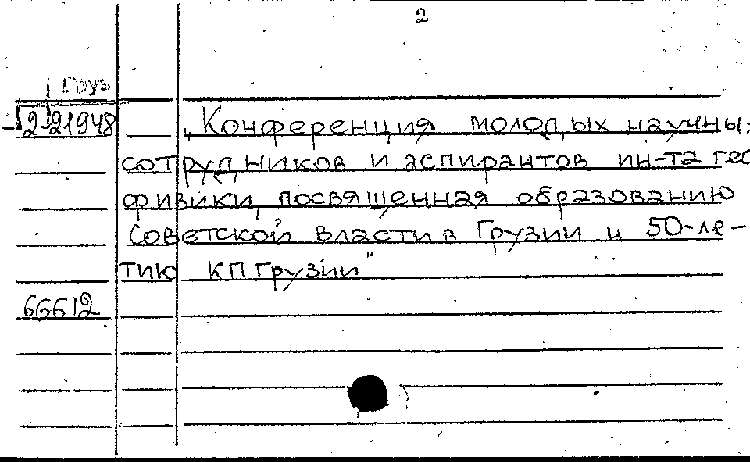 2
Груз
2-21948
„Конференция молодых научны
сотрудников и аспирантов ин-та гео
физики, посвященная образованию
Советской власти в Грузии и 50-ле-
тию КП Грузии"
66612